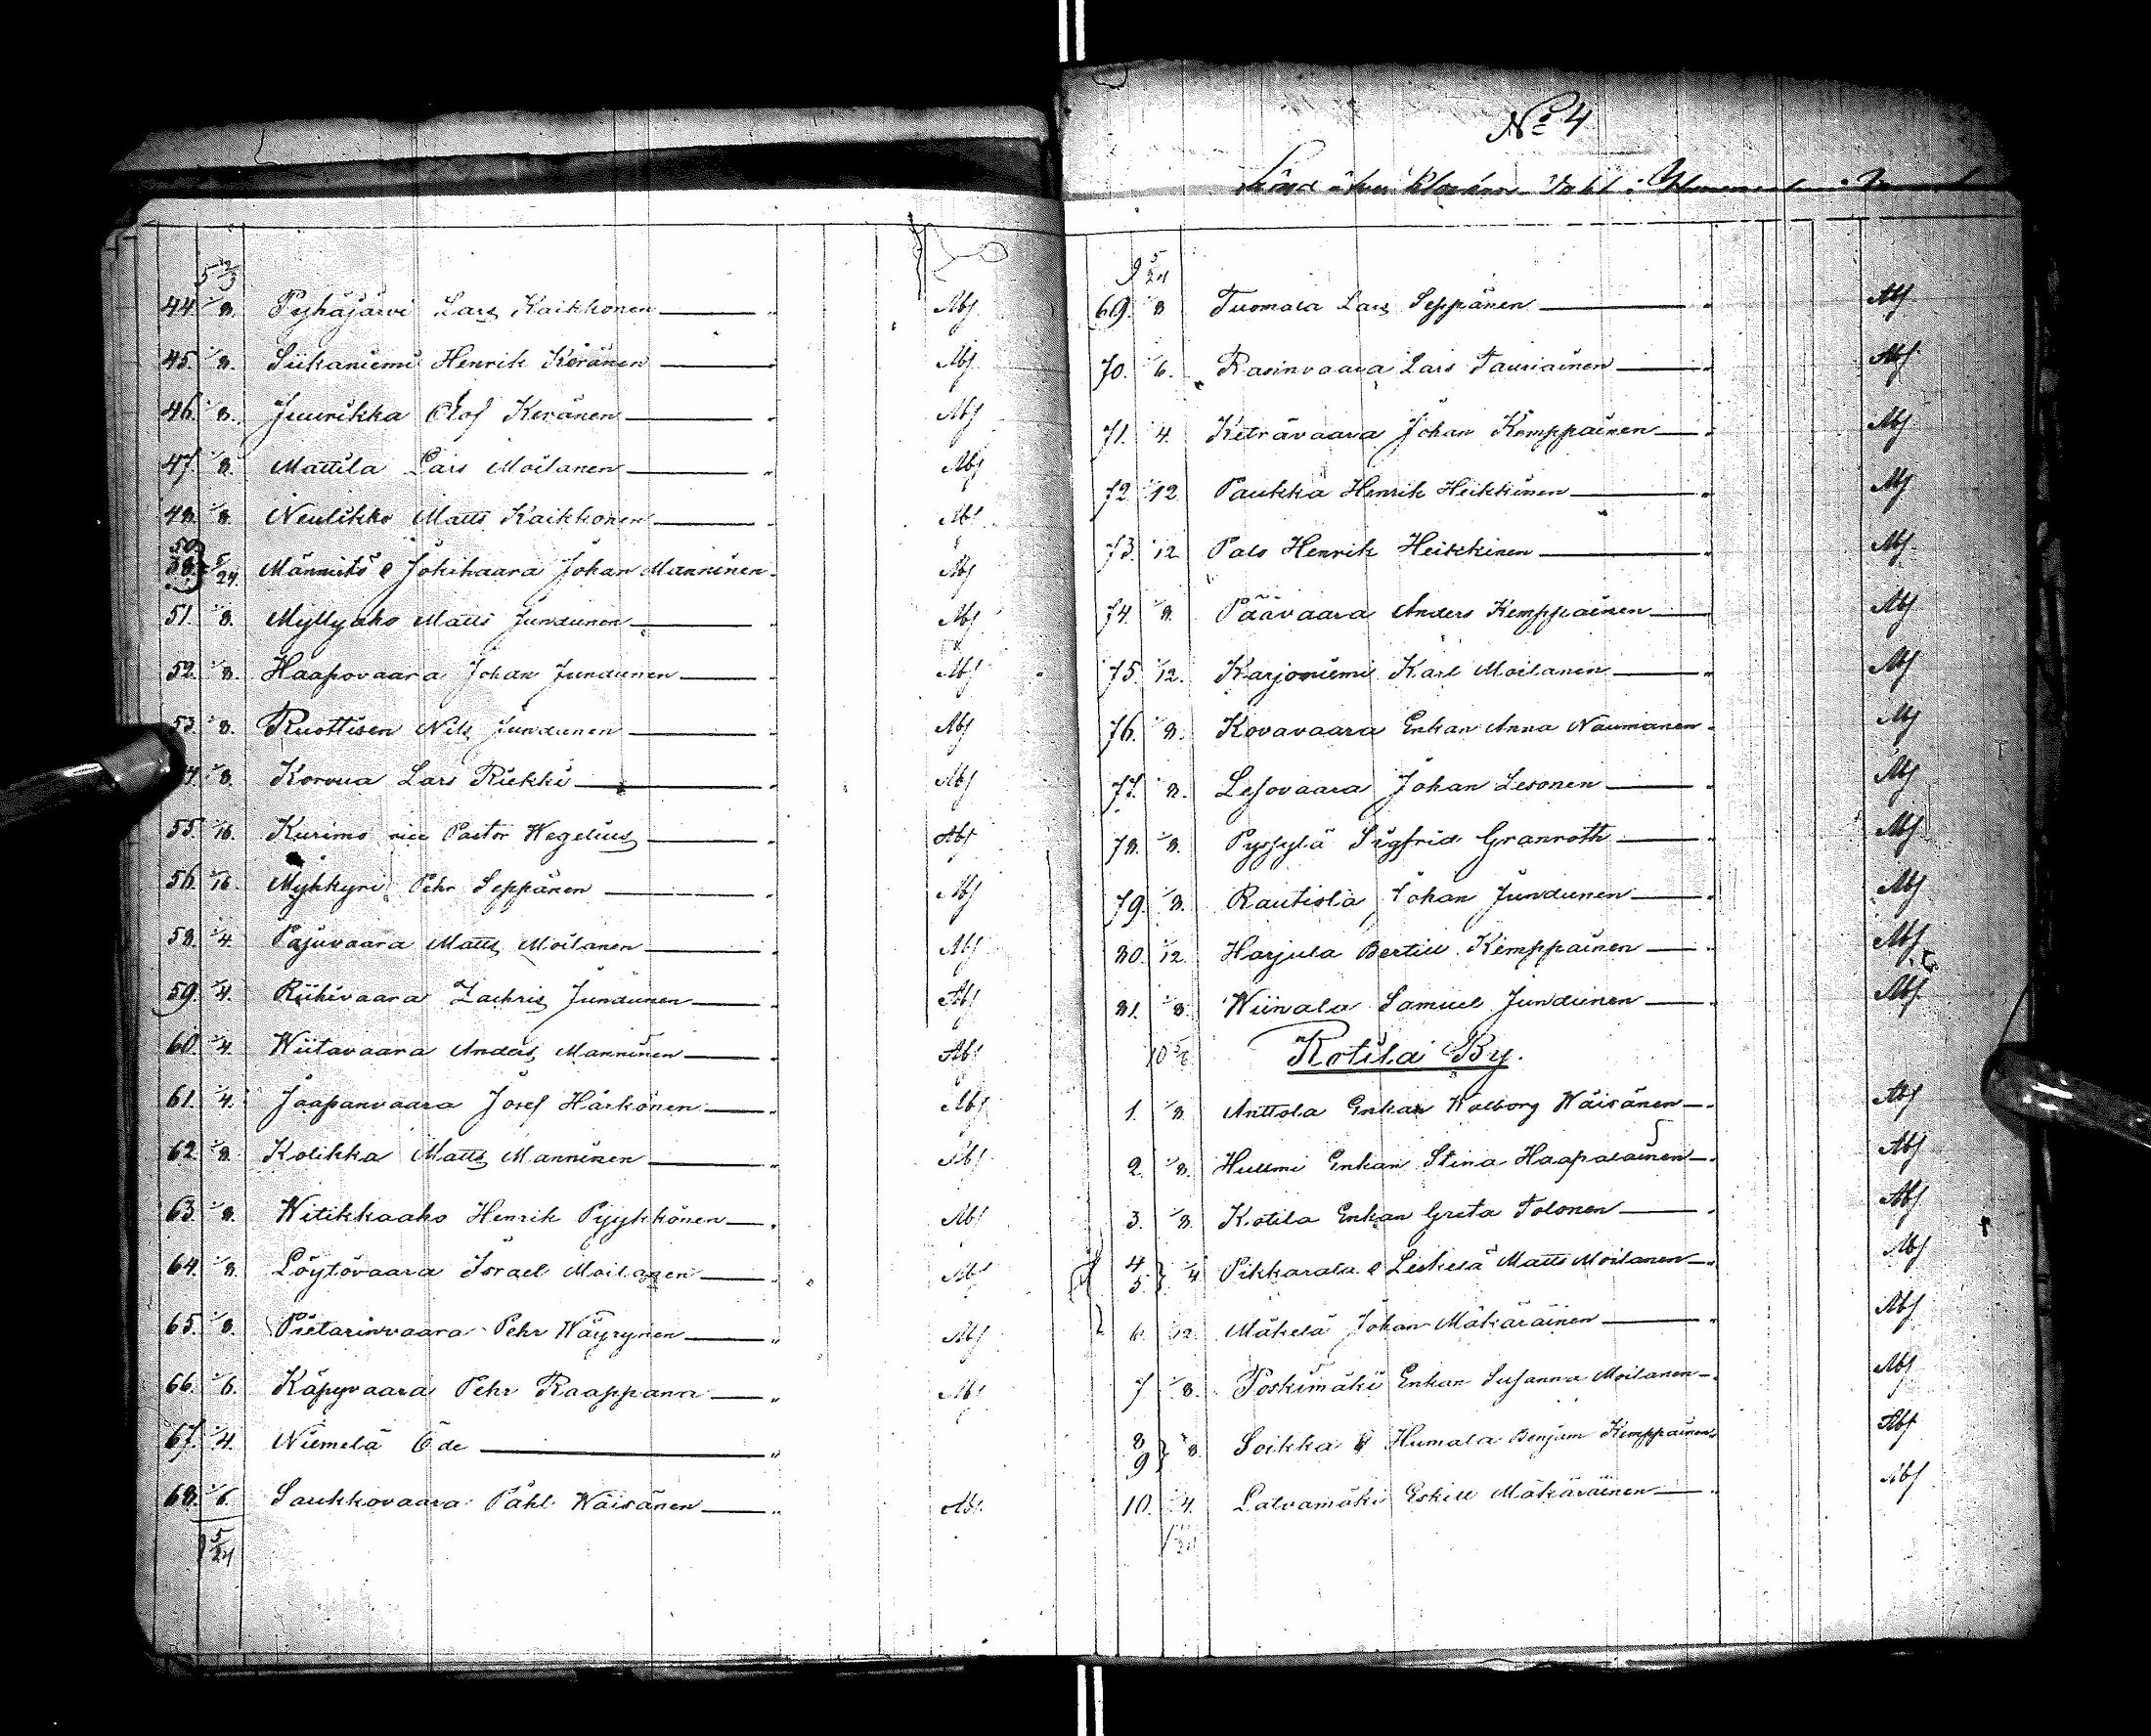 5 2/3
44. 1/8. Pyhäjärvi Lars Kaikkonen — " Abf
45. 1/8. Siikaniemi Henrik Keränen — " Abf
46. 1/8. Juurikka Olof Keränen — " Abf
47. 1/8. Mattila Lars Moilanen — " Abf
48. 1/8. Neulikko Matts Kaikkonen — " Abf
50.
38. } 5/24. Männistö & Jokihaara Johan Manninen " Abf
51. 1/8. Myllyaho Matts Jundunen — " Abf
52. 1/8. Haapovaara Johan Jundunen — " Abf
53. 1/8. Ruottisen Nils Jundunen — " Abf
4. 1/8. Korvua Lars Riekki — " Abf
55. 1/16. Kurimo Pastor Wegelius — " Abf
56. 1/16. Myhkyri Pehr Seppänen — " Abf
58. 1/4. Pajuvaara Matts Moilanen — " Abf
59. 1/4. Riihivaara Zachris Jundunen — " Abf
60. 1/4. Wiitavaara Anders Manninen — " Abf
61. 1/4. Jaapanvaara Josef Härkönen — " Abf
62. 1/8. Kolikka Matts Manninen — " Abf
63. 1/8. Witikkaaho Henrik Pyykkönen — " Abf
64. 1/8. Löytövaara Israel Moilanen — " Abf
65. 1/8. Pietarinvaara Pehr Wäyrynen — " Abf
66. 1/6. Käpyvaara Pehr Raappana — " Abf
67. 1/4. Niemelä Öde — "
68. 1/6. Saukkovaara Påhl Wäisänen — " Abf
9 5/24
No 4
9 5/24
69. 8 Tuomala Lars Seppänen — " Abf
70. 1/6. Rasinvaara Lars Tauriainen — " Abf
71. 4. Keträvaara Johan Kemppainen — " Abf
72. 1/12. Paukka Henrik Heikkinen — " Abf
73. 1/12 Palo Henrik Heikkinen — " Abf
74. 1/8. Päävaara Anders Kemppainen — " Abf
75. 1/12. Karjoniemi Karl Moilanen — " Abf
76. 1/8. Kovavaara Enkan Anna Naumanen " Abf
77. 1/8. Lesovaara Johan Lesonen — " Abf
78. 1/8. Pyssylä Sigfrid Granroth — " Abf
79. 1/8. Rautiola Johan Jundunen — " Abf
80. 1/12. Harjula Bertill Kemppainen — " Abf
81. 1/8. Wiinala Samuel Jundunen — " Abf
10 5/6 Kotila By.
1. 1/8. Anttola Enkan Walborg Wäisänen — " Abf
2. 1/8. Hullmi Enkan Stina Haapalainen — " Abf
3. 1/8. Kotila Enkan Greta Tolonen — " Abf
4
5. } 1/4 Pikkarala & Leskelä Matts Moilanen — " Abf
6. 1/12. Mäkelä Johan Mäkäräinen — " Abf
7 1/8. Poskimäki Enkan Susanna Moilanen — " Abf
8
9 } 1/8. Soikka & Humala Benjam Kemppainen " Abf
10. 1/4. Latvamäki Eskill Mäkäräinen — " Abf